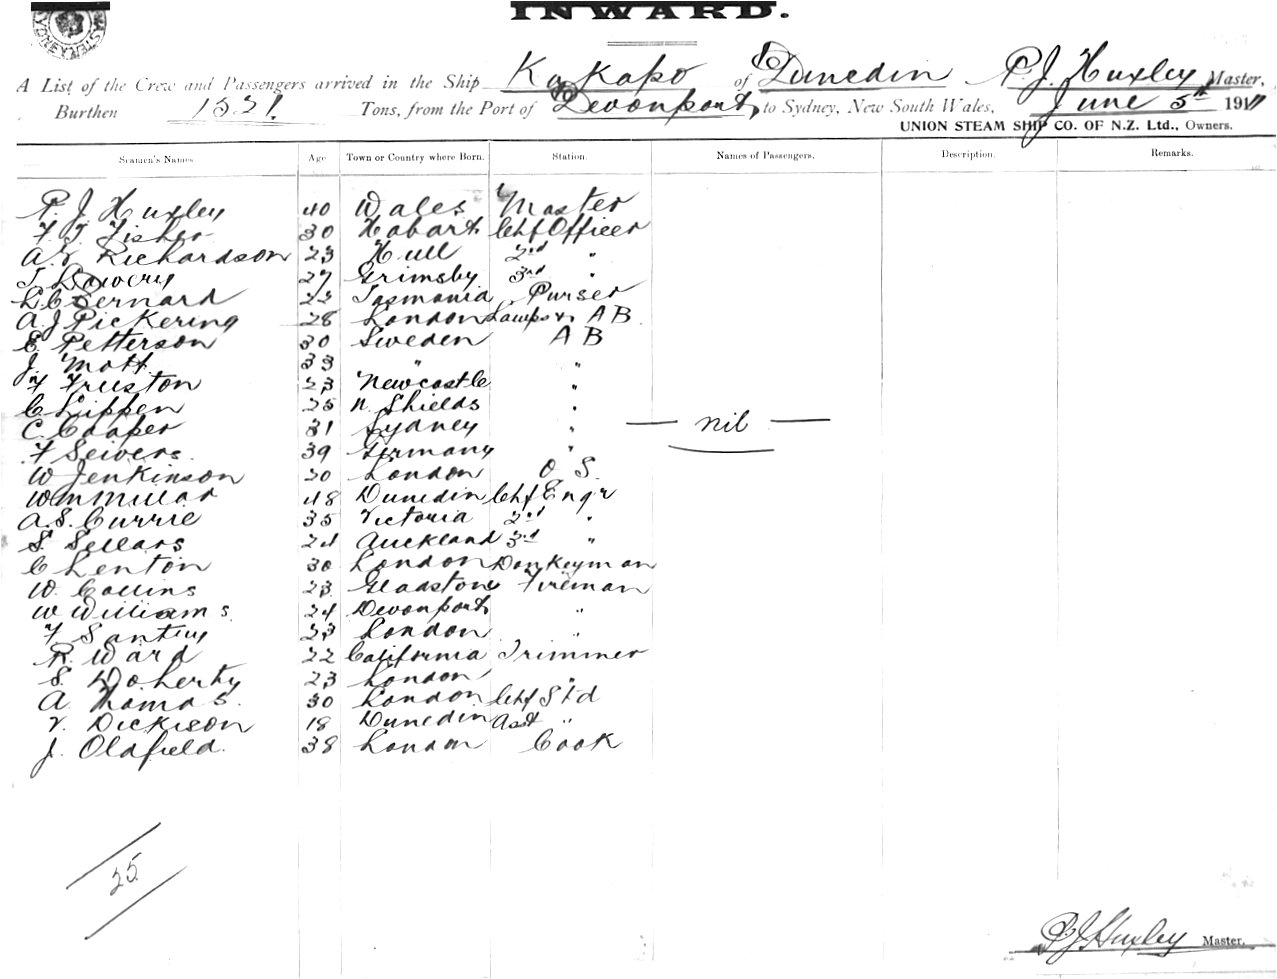 INWARD.
A List of the Crew and Passengers arrived in the Ship Kakapo of Dunedin P. J. Huxley Master,
Burthen 1531. Tons, from the Port of Devonport, to Sydney, New South Wales, June 5th 1911
UNION STEAM SHIP CO. OF N.Z. Ltd., Owners.
Seamen's Names Age Town or Country where Born. Station. Names of Passengers. Description. Remarks.
P. J. Huxley 40 Wales Master
F. T. Fisher 30 Hobart Chf Officer
A. Richardson 23 Hull 2nd "
T Lowery 27 Grimsby 3rd "
L. C Bernard 22 Tasmania Purser
A. J Pickering 28 London Lamps & AB
E. Petterson 30 Sweden A B
J. Mott 33 " "
F Fruston 23 Newcastle "
C Lippen 25 N. Shields "
C. Cooper 31 Sydney " — nil —
F Seivers 39 Germany "
W Jenkinson 20 London O S.
Wm Millar 48 Dunedin Chf Engr
A. S. Currie 35 Victoria 2nd "
S. Sellars 24 Auckland 3rd "
C Lenton 30 London Donkeyman
W. Collins 23 Gladstone Fireman
W Williams 24 Devonport "
F 23 London "
R. Ward 22 California Trimmer
S. Doherty 23 London "
A Thomas. 30 London Chf Std
V. Dickison 18 Dunedin Asst "
J. Oldfield. 38 London Cook
25
P. J. Huxley Master.